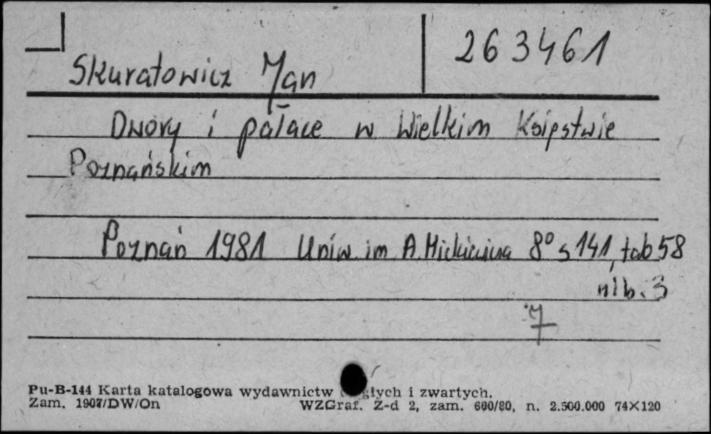 263461
Skuratowicz Jan
Dwory i pałace w Wielkim Księstwie
Poznańskim
Poznań 1981 Uniw. im A. Mickiewicza 8° s 141, tab 58
nlb. 3
Pu-B-144 Karta katalogowa wydawnictw głych i zwartych.
Zam. 1907/DW/On WZGraf. Z-d 2, zam. 600/80, n. 2.500.000 74×120